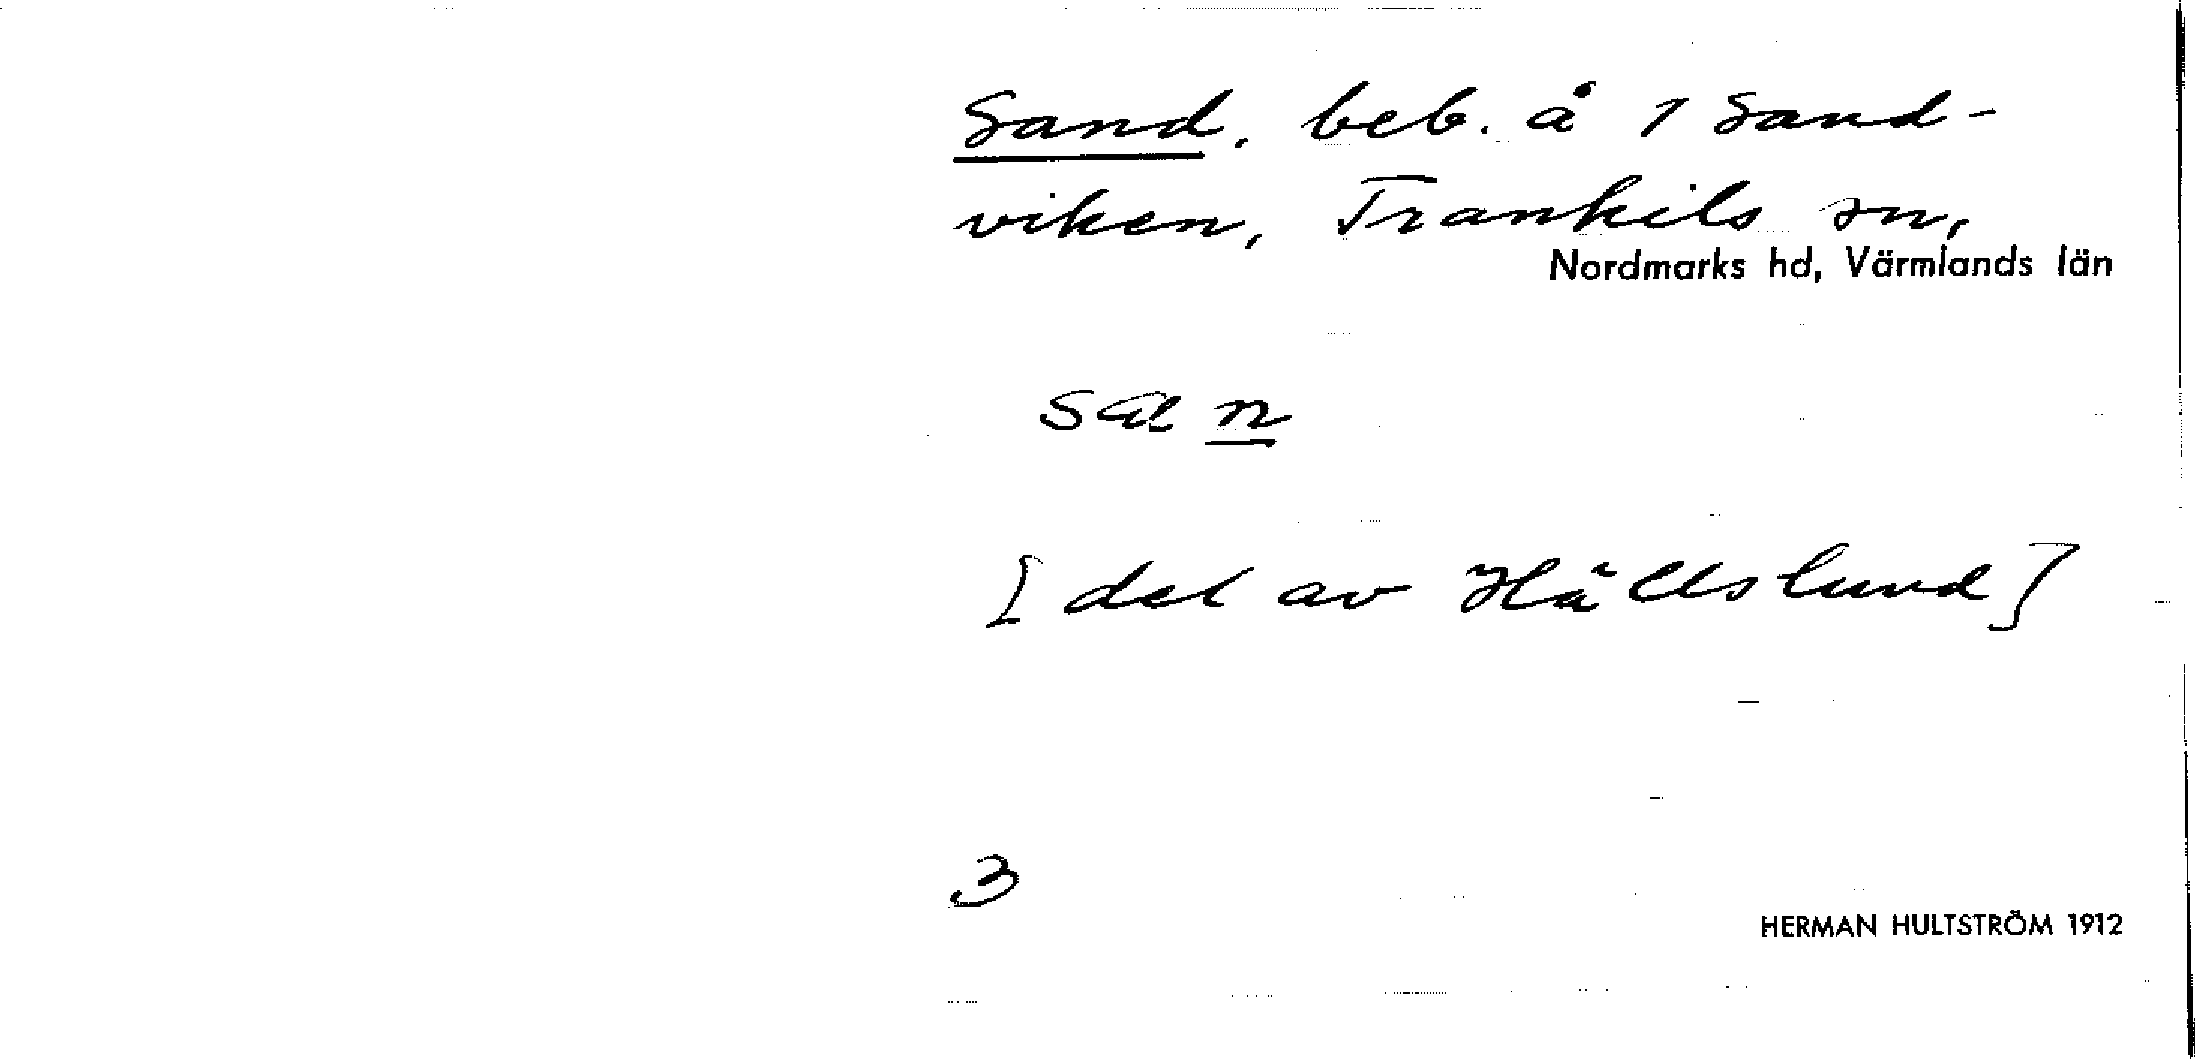 Sand, beb. å 1 Sand-
viken, Trankils sn,
Nordmarks hd, Värmlands län
[del av Hällslund]
3
HERMAN HULTSTRÖM 1912